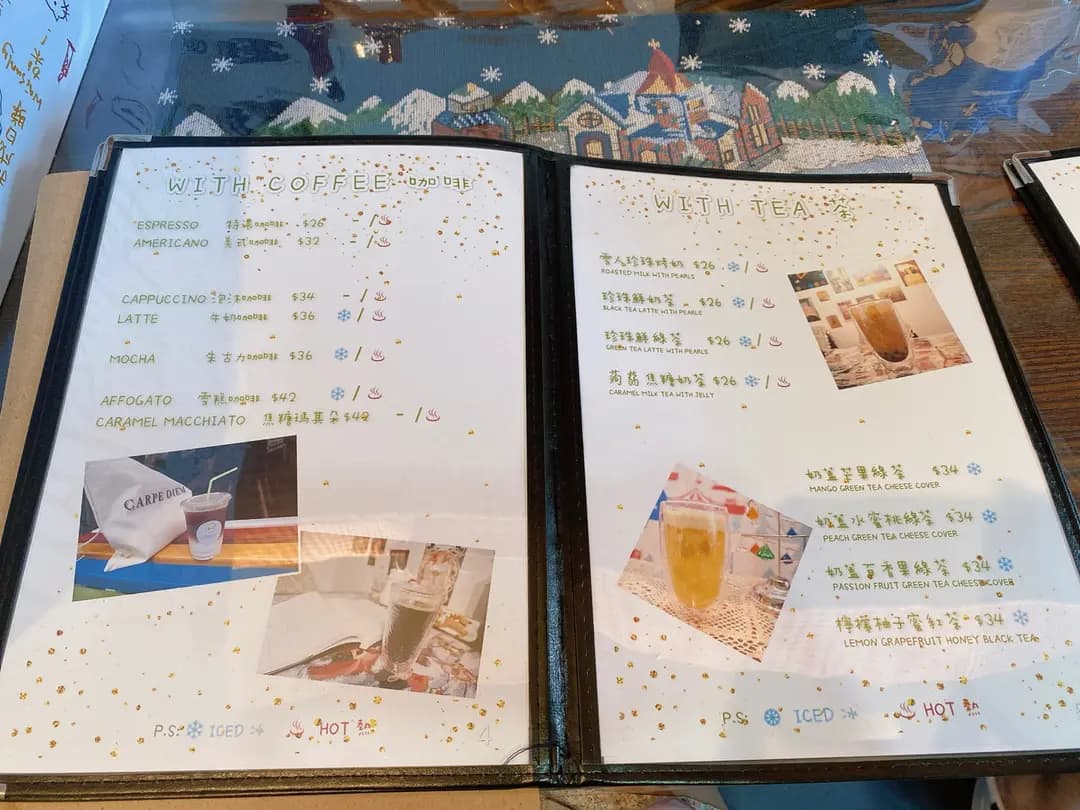 WITH COFFEE 咖啡
ESPRESSO 特濃咖啡 $26 - /
AMERICANO 美式咖啡 $32 - /
CAPPUCCINO 泡沫咖啡 $34 - /
LATTE 牛奶咖啡 $36 /
MOCHA 朱古力咖啡 $36 /
AFFOGATO 雪糕咖啡 $42 /
CARAMEL MACCHIATO 焦糖瑪其朵 $42 - /
CARPE DIEM
P.S: ICED HOT 熱
4
WITH TEA 茶
雪人珍珠烤奶 $26 /
ROASTED MILK WITH PEARLS
珍珠鮮奶茶 $26 /
BLACK TEA LATTE WITH PEARLS
珍珠鮮綠茶 $26 /
GREEN TEA LATTE WITH PEARLS
蒟蒻焦糖奶茶 $26 /
CARAMEL MILK TEA WITH JELLY
奶蓋芒果綠茶 $34
MANGO GREEN TEA CHEESE COVER
奶蓋水蜜桃綠茶 $34
PEACH GREEN TEA CHEESE COVER
奶蓋百香果綠茶 $34
PASSION FRUIT GREEN TEA CHEESE COVER
檸檬柚子蜜紅茶 $34
LEMON GRAPEFRUIT HONEY BLACK TEA
P.S: ICED HOT 熱